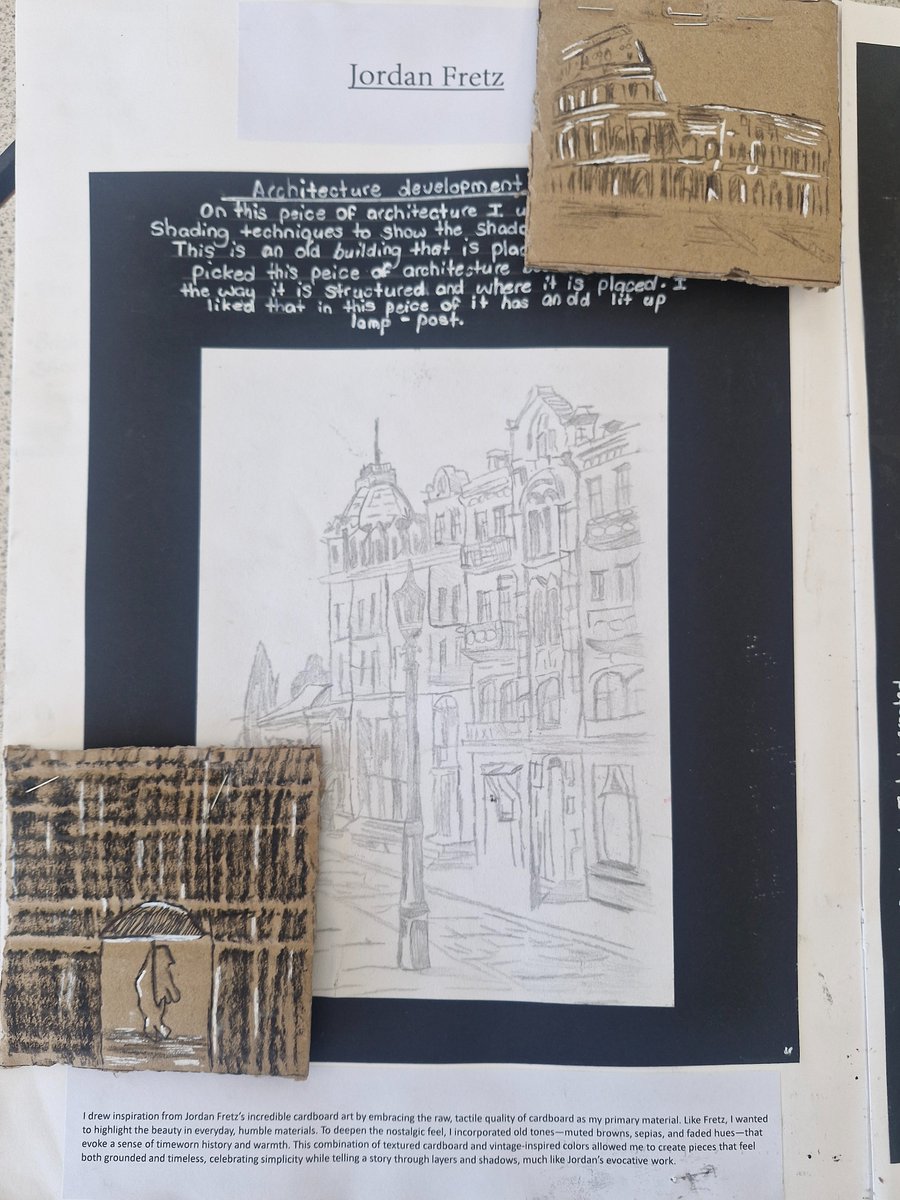 Jordan Fretz
Architecture development
On this peice of architecture I
Shading techniques to show the
This is an old building that is
Picked this peice of architecture
the way it is structured and where it is placed. I
liked that in this peice of it has an old lit up
lamp - post.
I drew inspiration from Jordan Fretz's incredible cardboard art by embracing the raw, tactile quality of cardboard as my primary material. Like Fretz, I wanted
to highlight the beauty in everyday, humble materials. To deepen the nostalgic feel, I incorporated old tones—muted browns, sepias, and faded hues—that
evoke a sense of timeworn history and warmth. This combination of textured cardboard and vintage-inspired colors allowed me to create pieces that feel
both grounded and timeless, celebrating simplicity while telling a story through layers and shadows, much like Jordan's evocative work.